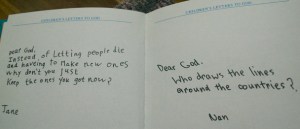 CHILDREN'S LETTERS TO GOD
Dear God,
Instead of Letting people die
and haveing to Make new ones
why don't you just
Keep the ones you got now?
Jane
CHILDREN'S LETTERS TO GOD
Dear God.
Who draws the lines
around the countries?
Nan